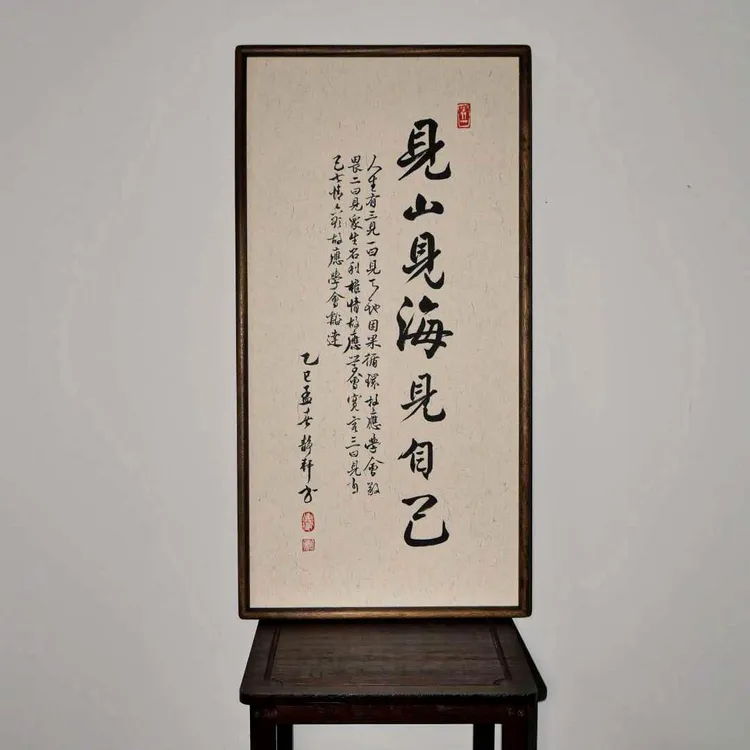 見山見海見自己
人生有三見一曰見天地因果循環故應學會敬
畏二曰見眾生名利權情故應学會寬言三曰見自
己七情六欲故應學會豁達
乙巳孟春静軒书